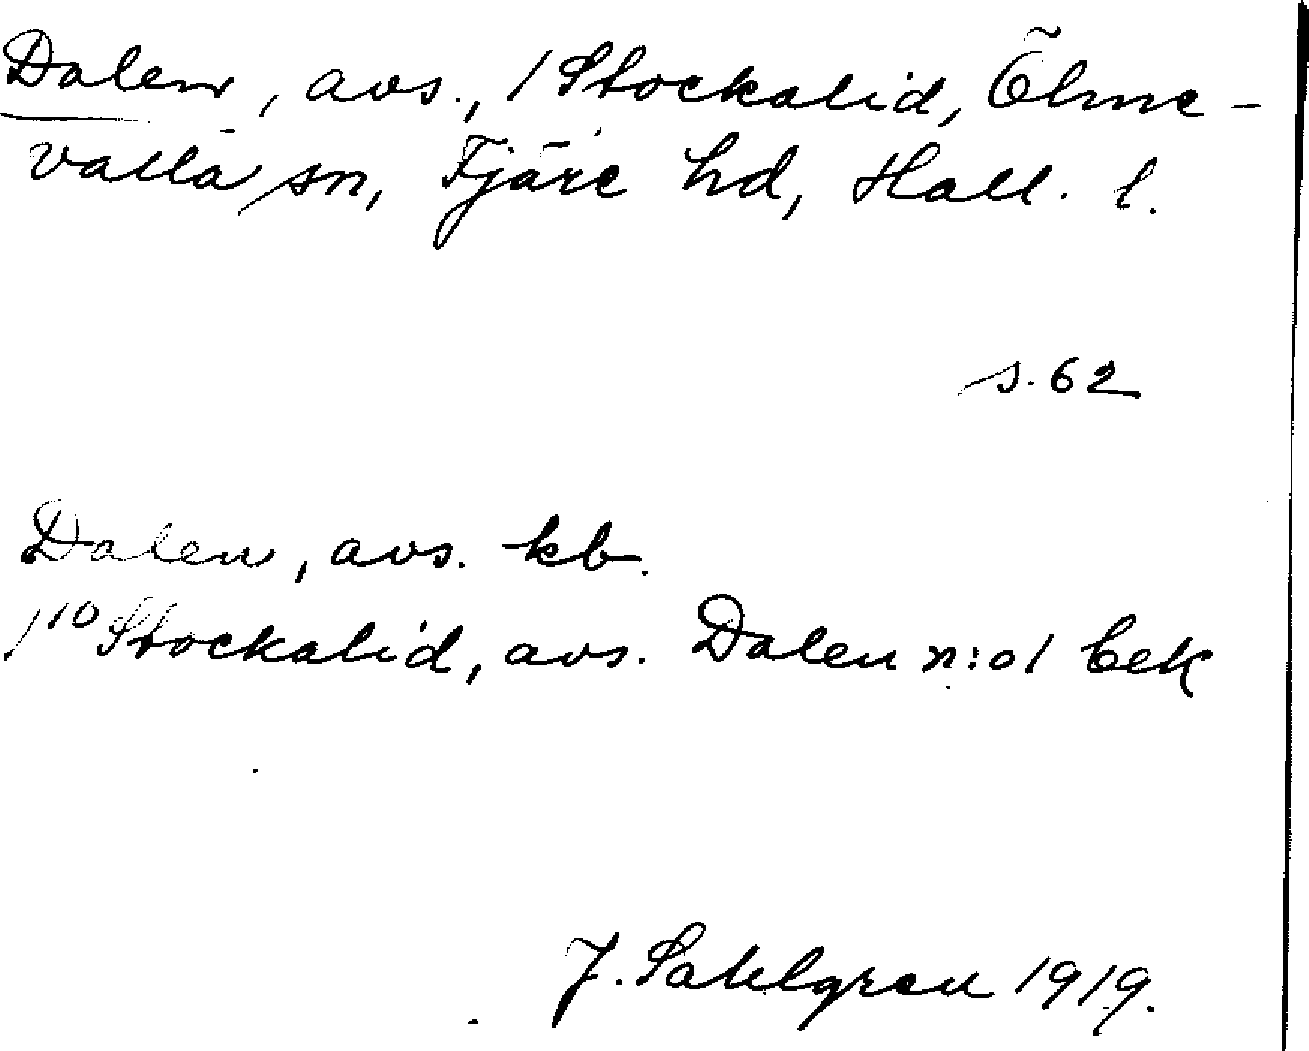 Dalen, avs., / Stockalid, Ölme-
valla sn, Fjäre hd, Hall. l.
s. 62
Dalen, avs. kb.
/10 Stockalid, avs. Dalen n:o 1 Cek
J. Sahlgren 1919.